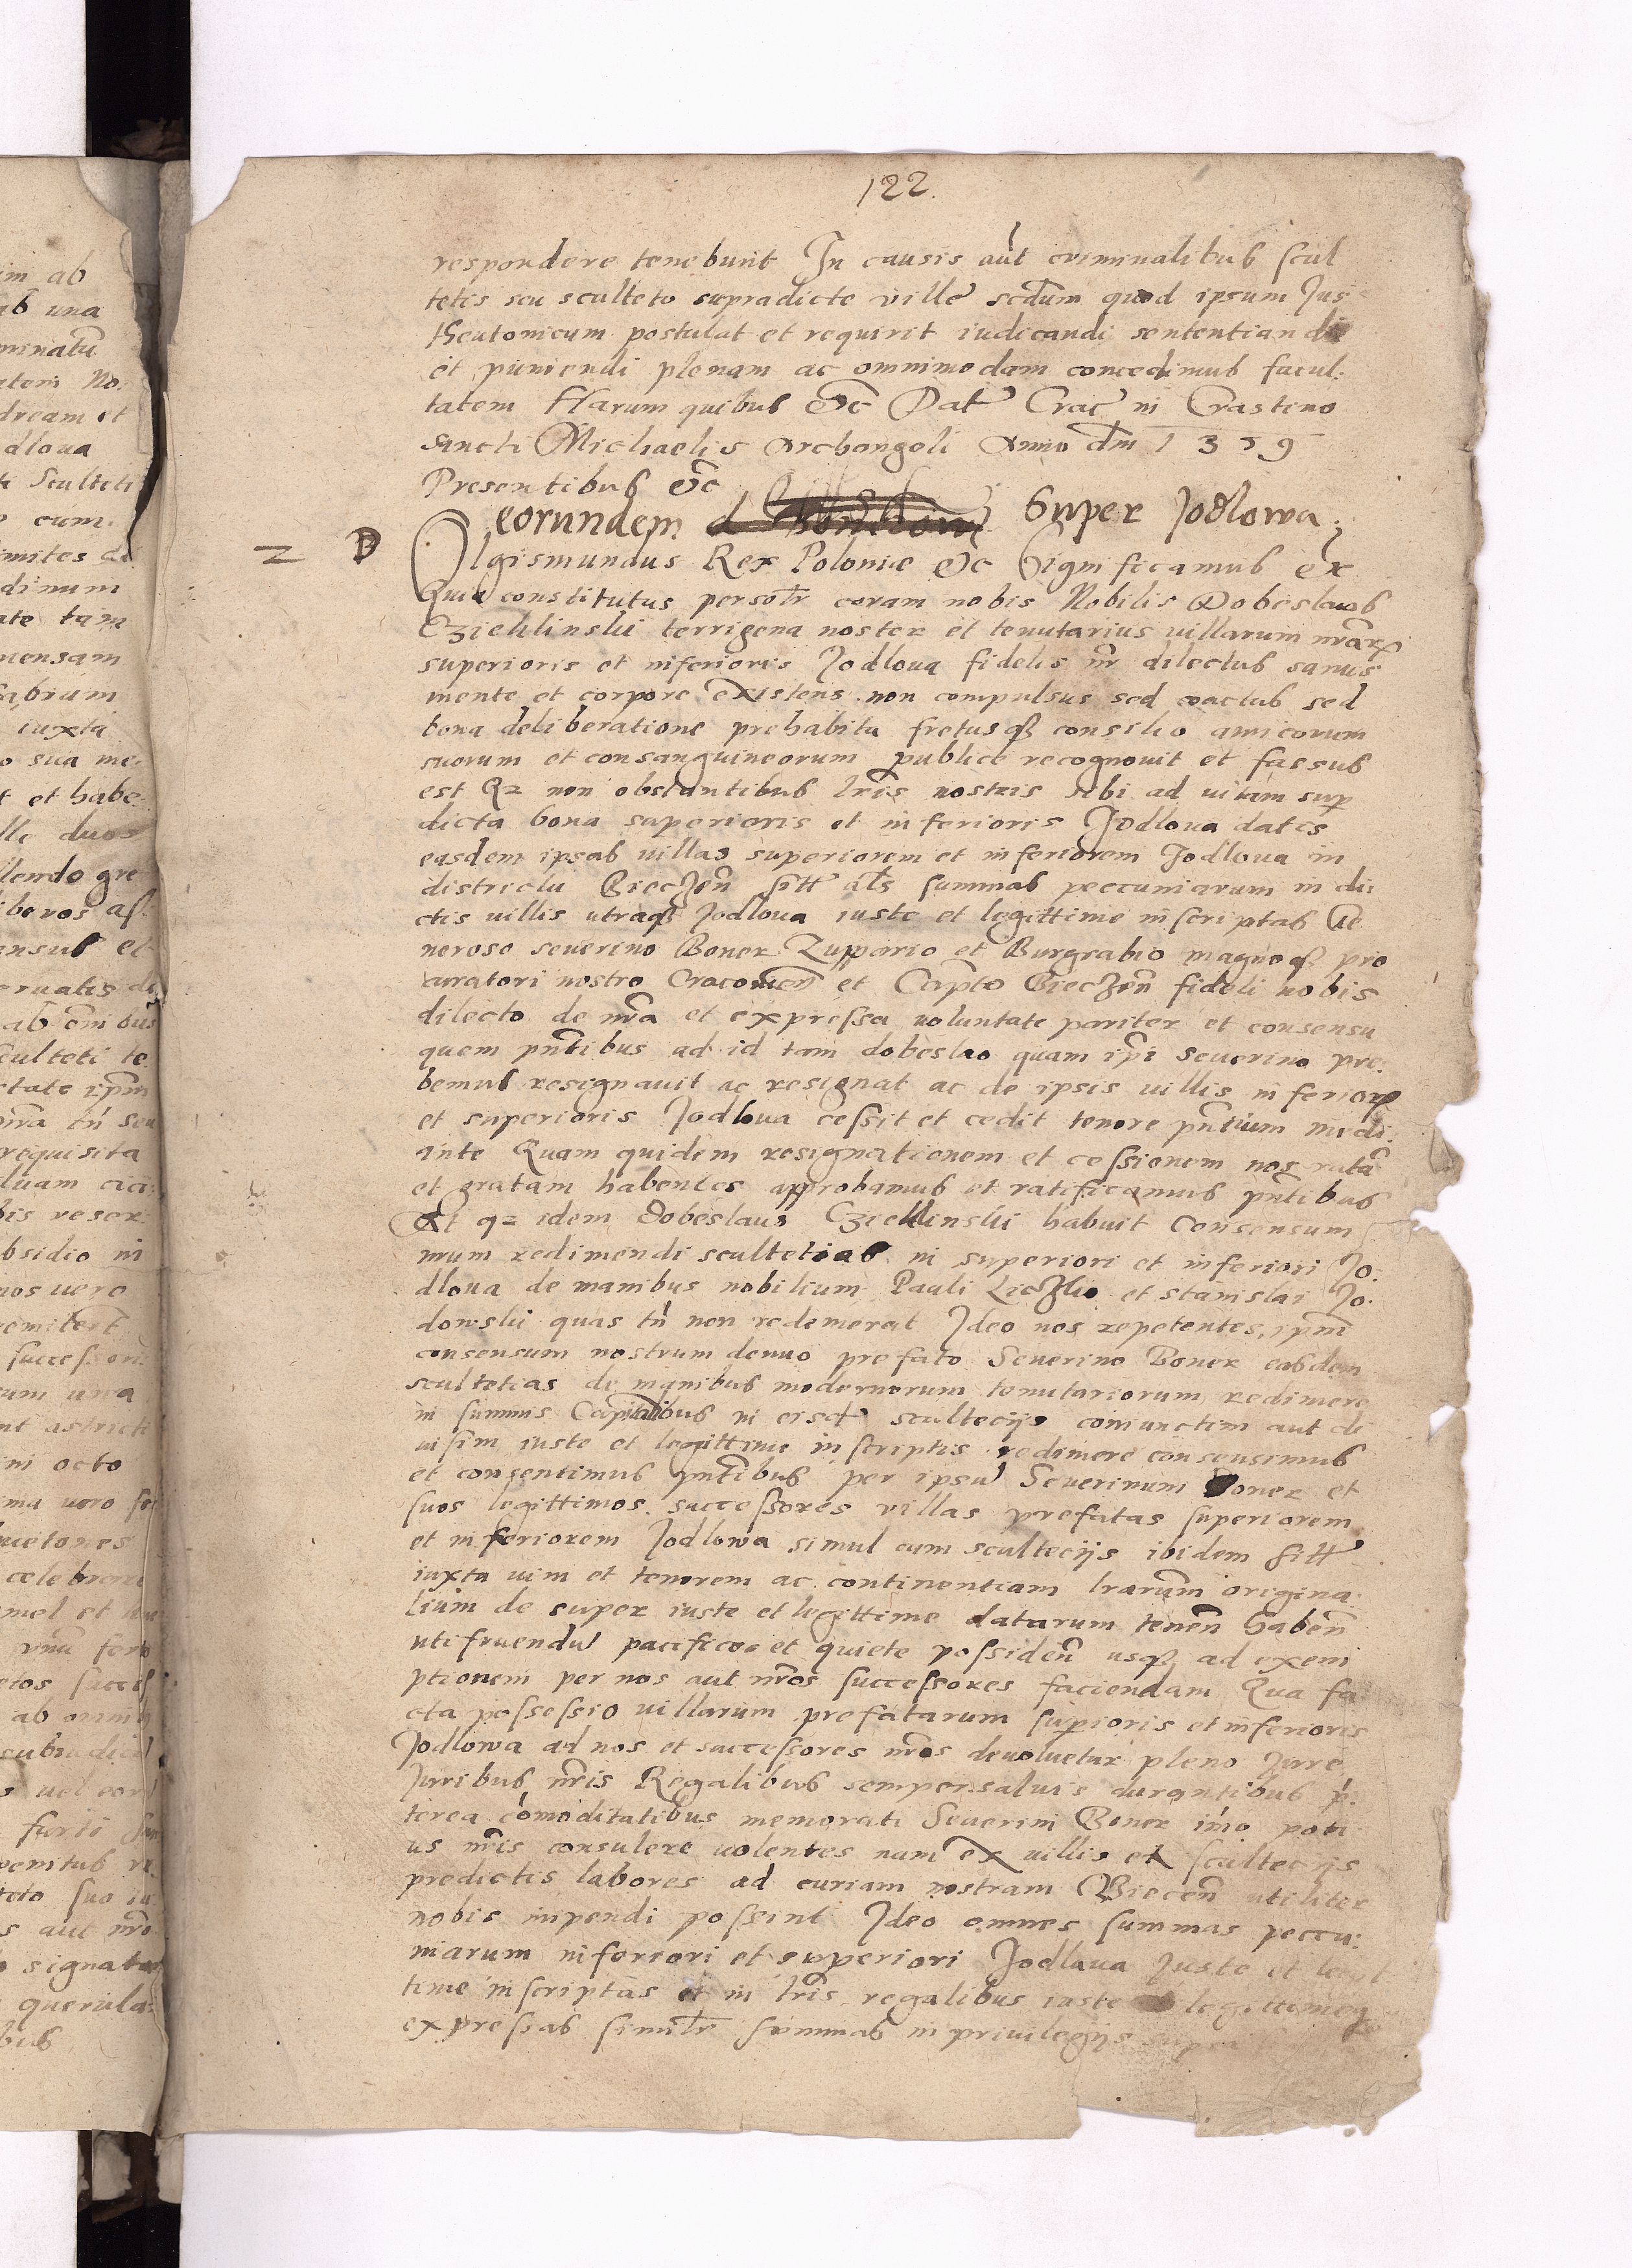 122.
respondere tenebunt In causis aut criminalibus scul
tetis seu sculteto supradicte ville scdum quod ipsum Jus
theutonicum postulat et requirit iudicandi sententiandi
et puniendi plenam ac omnimodam concedimus facul:
tatem Harum quibus etc Dat Crac in Crastino
sancti Michaelis Archangeli Anno dni 1359
Presentibus etc
eorundem Super Jodlowa
Sigismundus Rex Polonie etc Significamus
Quia constitutus persolr coram nobis Nobilis Dobeslaus
Czieklinski terrigena noster et tenutarius villarum nrarx
superioris et inferioris Jodloua fidelis nr dilectus sanus
mente et corpore existens non compulsus sed coactus sed
bona deliberatione prehabita fretusq consilio amicorum
suorum et consanguineorum publice recognouit et fassus
est Qz non obstantibus lris nostris sibi ad uitam sup
dicta bona superioris et inferioris Jodloua datis
easdem ipsas uillas superiorem et inferiorem Jodloua in
districtu Bieczen sitt als summas peccuniarum in di
ctis villis utraq Jodloua iuste et legittime inscriptas Ge
neroso seuerino Boner Zuppario et Burgrabio magnoq pro
curatori nostro Cracouien et Capto Bieczen fideli nobis
dilecto de nra et expressa uoluntate pariter et consensu
quem pntibus ad id tam dobeslao quam ipi seuerino pre:
bemus resignauit ac resignat ac de ipsis uillis inferiorx
et superioris Jodloua cessit et cedit tenore pntium medi:
ante Quam quidem resignationem et cessionem nos ratam
et gratam habentes approbamus et ratificamus pntibus
Et qz idem Dobeslaus Czieklinski habuit Consensum
nrum redimendi scultetias in superiori et inferiori Jo:
dloua de manibus nobilium Pauli et stanislai Jo:
dowski quas tn non redemerat Ideo nos repetentes ipm
consensum nostrum denuo prefato Seuerino Boner easdem
scultetias de manibus modernorum tenutariorum redimere
in summis Capitalibus in eisd scultecijs coniunctim aut di
uisim iuste et legittime inscriptis redimere consensimus
et consentimus pntibus per ipsu Seuerinum Boner et
suos legittimos successores villas prefatas superiorem
et inferiorem Jodlowa simul cum scultecijs ibidem sitt
iuxta uim et tenorem ac continentiam lrarum origina
lium de super iuste et legittime datarum tenen haben
utifruendu pacifice et quiete possiden usq ad exem
ptionem per nos aut nros successores faciendam Qua fa
cta possessio uillarum prefatarum superioris et inferioris
Jodlowa ad nos et successores nros deuoluetur pleno Jure
Juribus nris Regalibus semper saluis durantibus p:
terea comoditatibus memorati Seuerini Boner imo poti
us nris consulere uolentes nam ex uillis et scultecijs
predictis labores ad curiam nostram Biecen utiliter
nobis inpendi possint Ideo omnes summas peccu:
niarum inferiori et superiori Jodlaua Juste et legit
time inscriptas et in lris regalibus iuste legittimeq
expressas similr summas in priuilegijs